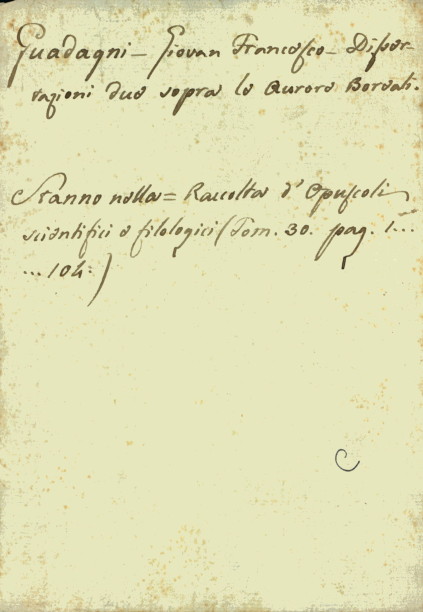 Guadagni - Giovan Francesco - Disser-
tazioni due sopra le Aurore Boreali.
Stanno nella = Raccolta d' Opuscoli
scientifici e filologici (Tom. 30. pag. 1...
...104.)
C